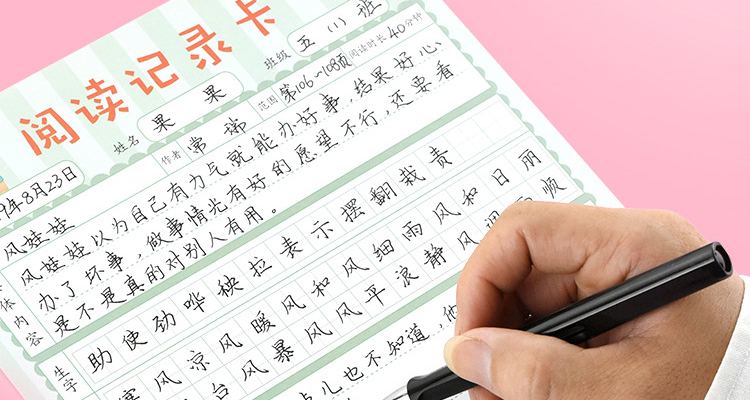 阅读记录卡
班级 五（1）班
姓名 果果
范围 第106~108页 阅读时长 40分钟
9年8月23日
作者 常瑞
风娃娃
风娃娃以为自己有力气就能办好事，结果好心
办了坏事，做事情光有好的愿望不行，还要看
是不是真的对别人有用。
体内容
生字
助使劲哗秧拉表示摆翻栽责
寒风凉风暖风和风细雨风和日丽
台风暴风风平浪静风调雨顺
儿也不知道，他